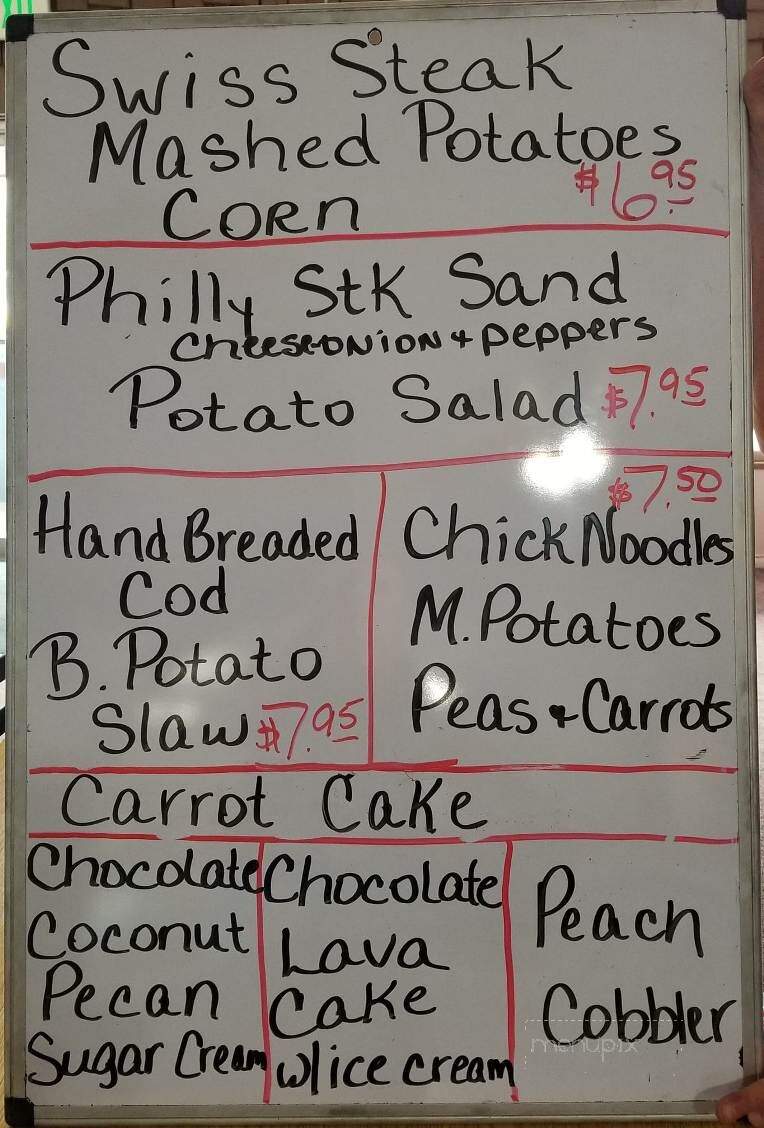 Swiss Steak
Mashed Potatoes
$6.95
Corn
Philly Stk Sand
Cheese onion + peppers
Potato Salad $7.95
Hand Breaded
Cod
B. Potato
Slaw $7.95
$7.50
Chick Noodles
M. Potatoes
Peas + Carrots
Carrot Cake
Chocolate
Coconut
Pecan
Sugar Cream
Chocolate
Lava
Cake
w/ice cream
Peach
Cobbler
menupix